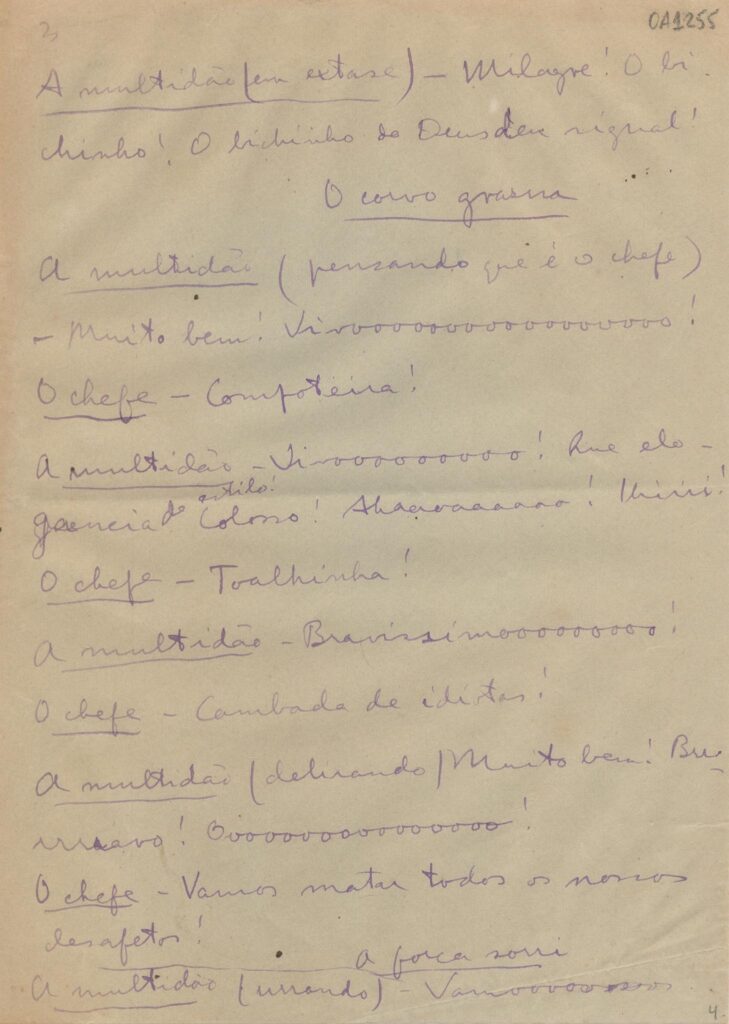 3
OA1255
A multidão (em extase) – Milagre! O bi-
chinho! O bichinho de Deus deu signal!
O corvo grasna
A multidão (pensando que é o chefe)
– Muito bem! Vivoooooooooooooooooo!
O chefe – Compoteira!
A multidão – Vivooooooooooo! Que ele-
gancia de estilo! Colosso! Ahaaaaaaaaaa! Ihiiii!
O chefe – Toalhinha!
A multidão – Bravissimoooooooooo!
O chefe – Cambada de idiotas!
A multidão (delirando) Muito bem! Brr-
rrravo! Oooooooooooooooooo!
O chefe – Vamos matar todos os nossos
desafetos!
A força sorri
A multidão (urrando) – Vamoooooosooos
4